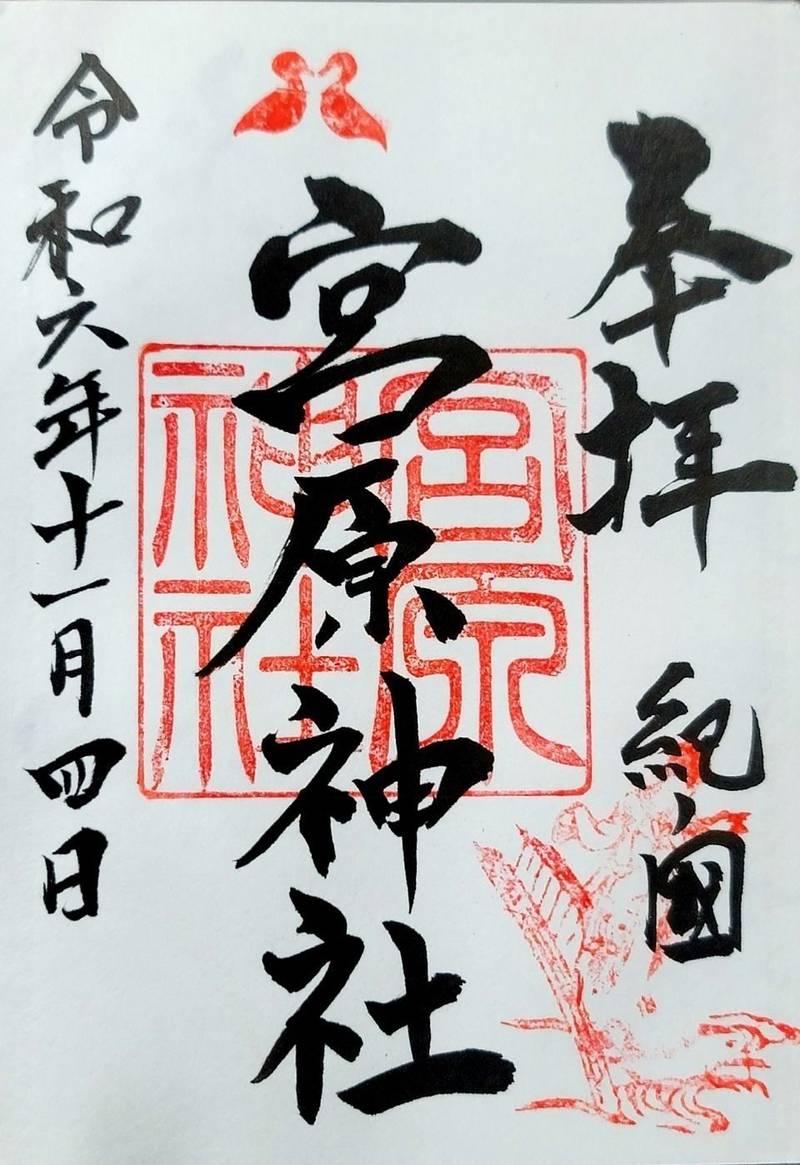 奉拝
紀ノ國
宮原神社
宮原神社
令和六年十一月四日